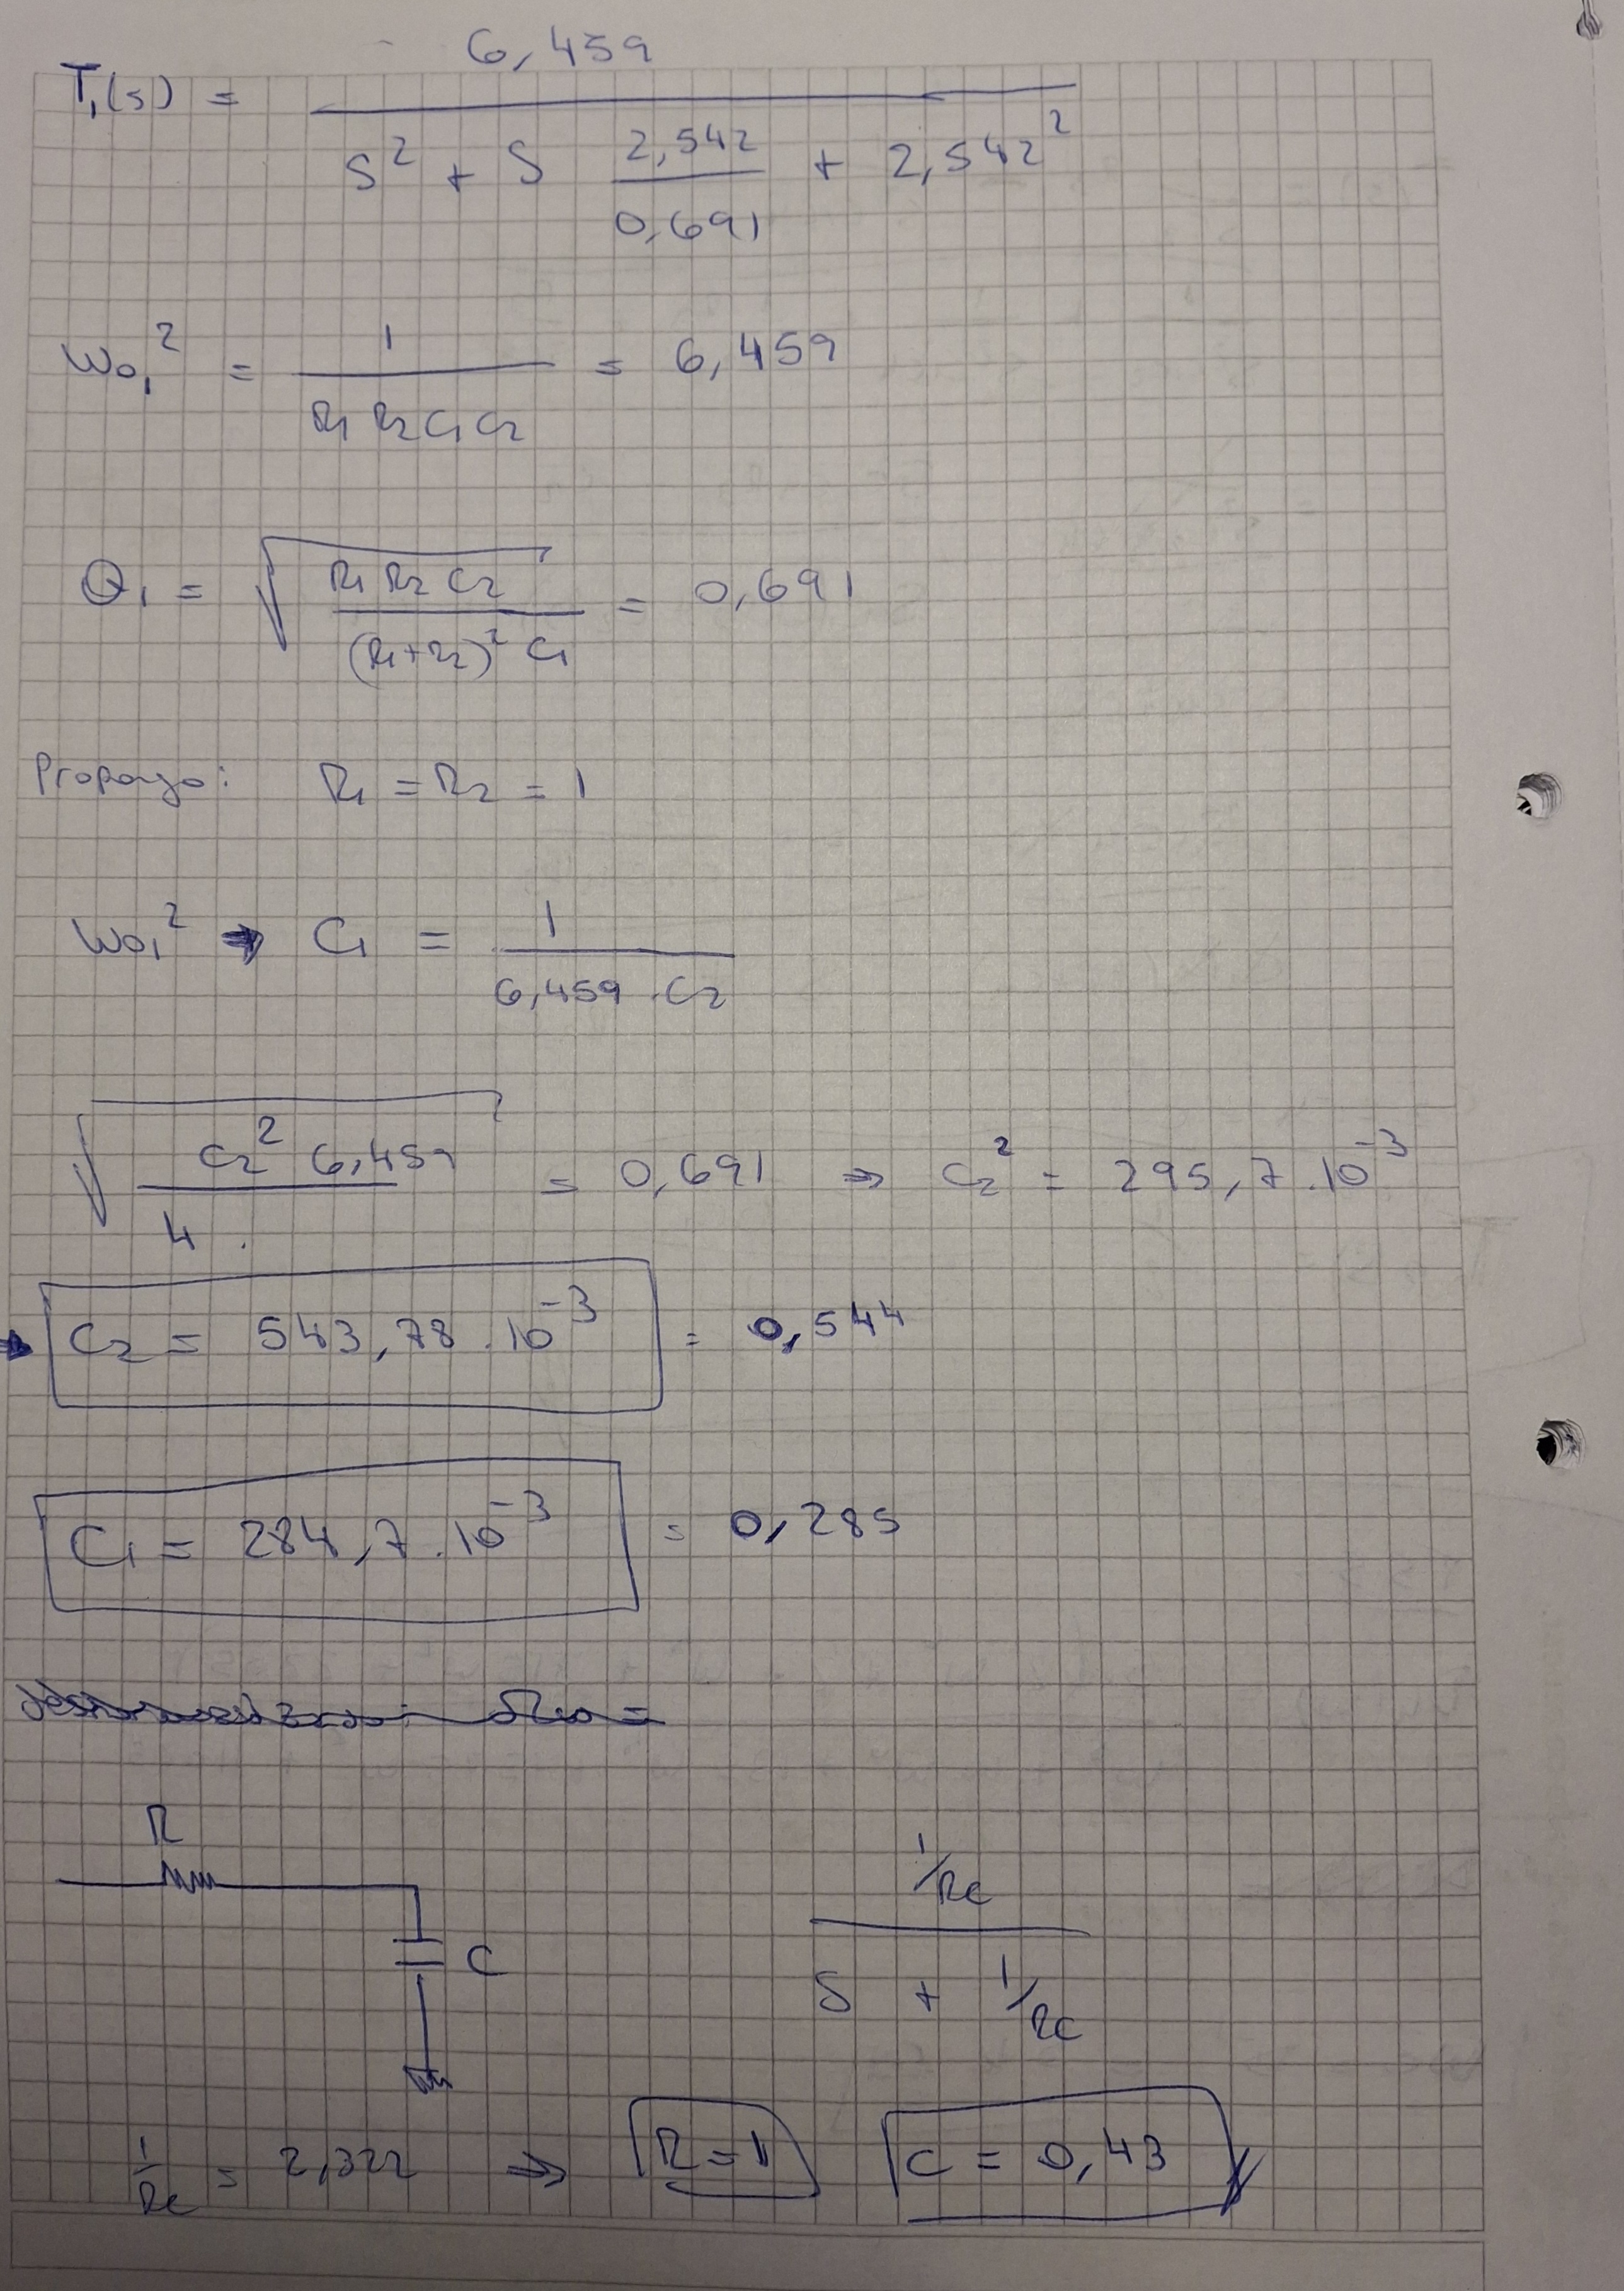 T₁(s) = 6,459 / (S² + S 2,542/0,691 + 2,542²)
W₀₁² = 1 / (R₁ R₂ C₁ C₂) = 6,459
Q₁ = √(R₁ R₂ C₂ / ((R₁+R₂)² C₁)) = 0,691
Propongo: R₁ = R₂ = 1
W₀₁² → C₁ = 1 / (6,459 · C₂)
√(C₂² 6,459 / 4) = 0,691 ⇒ C₂² = 295,7 · 10⁻³
→ C₂ = 543,78 · 10⁻³ = 0,544
C₁ = 284,7 · 10⁻³ = 0,285
R
C
(1/RC) / (S + 1/RC)
1/RC = 2,322 ⇒ R = 1 C = 0,43